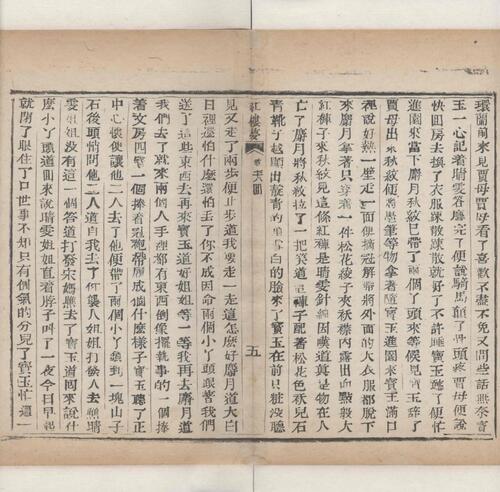 環蘭前來見賈母賈母看了喜歡不盡不免又問些話無奈寶
玉一心記着晴雯答應完了便說騎馬顛了骨頭疼賈母便說
快回房去換了衣服疎散疎散就好了不許睡寶玉聽了便忙
進園來當下麝月秋紋已帶了兩個丫頭來等候見寶玉辭了
賈母出來秋紋便將墨筆等物拿著隨寶玉進園來寶玉滿口
裡說好熱一壁走一面便摘冠解帶將外面的大衣服都脫下
來麝月拿著只穿着一件松花綾子夾襖襟內露出血點般大
紅褲子來秋紋見這條紅褲是晴雯針線因嘆道真是物在人
亡了麝月將秋紋拉了一把笑道這褲子配著松花色襖兒石
青靴子越顯出靛青的頭雪白的臉來了寶玉在前只粧沒聽
紅樓夢
五
見又走了兩步便止步道我要走一走這怎麼好麝月道大白
日裡還怕什麼還怕丟了你不成因命兩個小丫頭跟着我們
送了這些東西去再來寶玉道好姐姐等一等我再去麝月道
我們去了就來兩個人手裡都有東西倒像擺執事的一個捧
着文房四寶一個捧着冠袍帶履成個什麼樣子寶玉聽了正
中心懷便讓他二人去了他便帶了兩個小丫頭到一塊山子
石後頭悄問他二人道自我去了你襲人姐姐打發人去瞧晴
雯姐姐沒有這一個答道打發宋媽瞧去了寶玉道回來說什
麼小丫頭道回來說晴雯姐姐直着脖子叫了一夜今日早起
就閉了眼住了口世事不知只有倒氣的分兒了寶玉忙道一